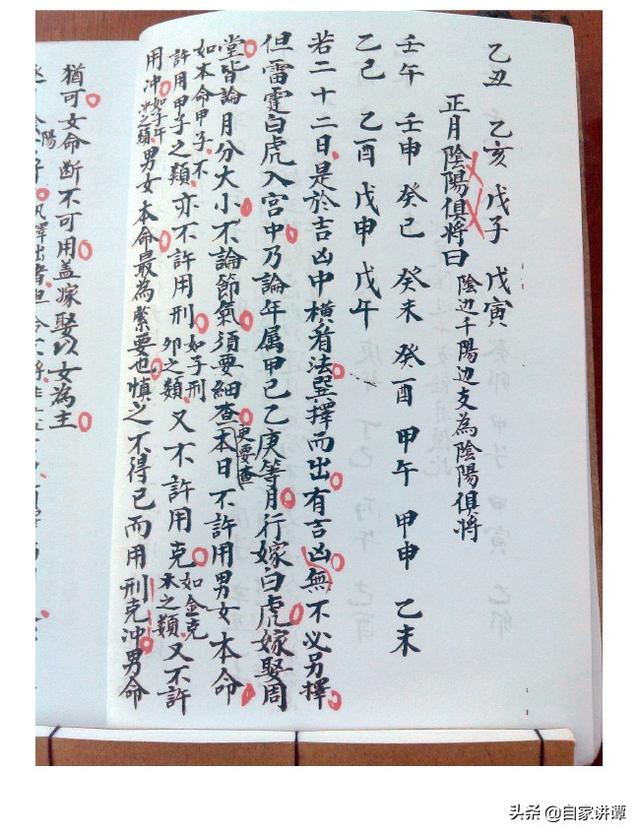 乙丑 乙亥 戊子 戊寅
正月陰陽俱將曰 陰边干陽边支為陰陽俱將
壬午 壬申 癸巳 癸未 癸酉 甲午 甲申 乙未
乙巳 乙酉 戊申 戊午
若二十二日是於吉凶中橫看法㢲擇而出有吉凶無不必另擇
但雷霆白虎入宫中乃論年属甲己乙庚等月行嫁白虎嫁娶周
堂皆論月分大小不論節氣須要細查更要查本日不許用男女本命
如本命甲子不許用甲子之類亦不許用刑如子刑卯之類又不許用克如金克木之類又不許
用冲如子午冲之類男女本命最為緊要也慎之不得已而用刑克冲男命
猶可女命断不可用盖嫁娶以女為主
头条 @自家讲谭